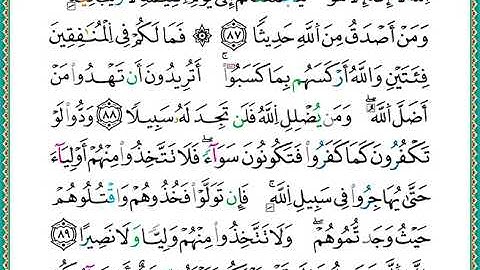 وَمَنْ أَصْدَقُ مِنَ ٱللَّهِ حَدِيثًا ٨٧ ۞ فَمَا لَكُمْ فِى ٱلْمُنَٰفِقِينَ
فِئَتَيْنِ وَٱللَّهُ أَرْكَسَهُم بِمَا كَسَبُوٓا۟ ۚ أَتُرِيدُونَ أَن تَهْدُوا۟ مَنْ
أَضَلَّ ٱللَّهُ ۖ وَمَن يُضْلِلِ ٱللَّهُ فَلَن تَجِدَ لَهُۥ سَبِيلًا ٨٨ وَدُّوا۟ لَوْ
تَكْفُرُونَ كَمَا كَفَرُوا۟ فَتَكُونُونَ سَوَآءً ۖ فَلَا تَتَّخِذُوا۟ مِنْهُمْ أَوْلِيَآءَ
حَتَّىٰ يُهَاجِرُوا۟ فِى سَبِيلِ ٱللَّهِ ۚ فَإِن تَوَلَّوْا۟ فَخُذُوهُمْ وَٱقْتُلُوهُمْ
حَيْثُ وَجَدتُّمُوهُمْ ۖ وَلَا تَتَّخِذُوا۟ مِنْهُمْ وَلِيًّا وَلَا نَصِيرًا ٨٩